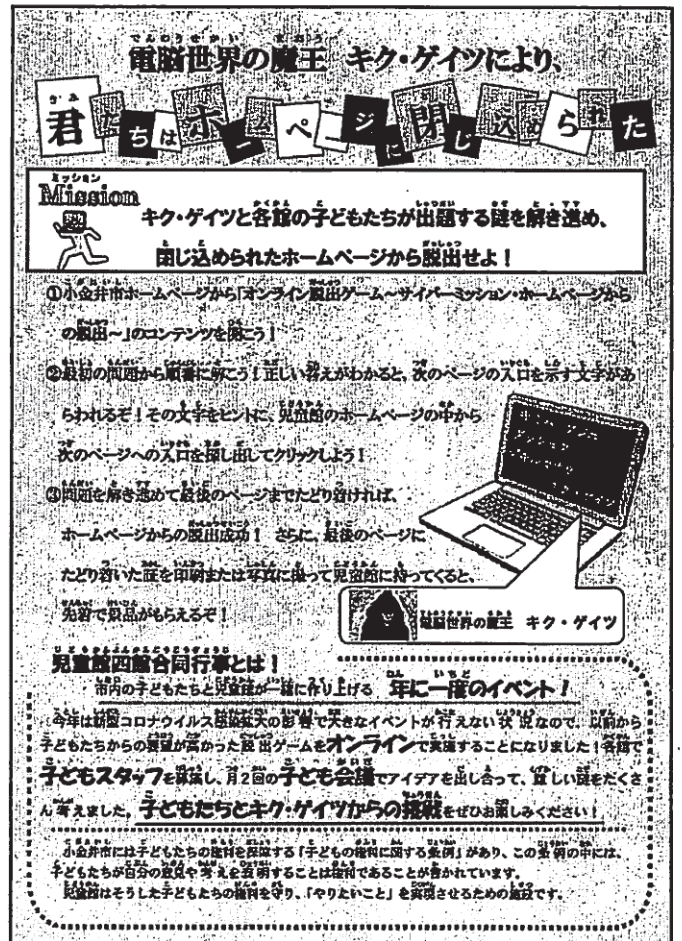 電脳世界の魔王 キク・ゲイツにより、
君たちはホームページに閉じ込められた
ミッション
Mission
キク・ゲイツと各館の子どもたちが出題する謎を解き進め、
閉じ込められたホームページから脱出せよ！
①小金井市ホームページから「オンライン脱出ゲーム～サイバーミッション・ホームページから
の脱出～」のコンテンツを開こう！
②最初の問題から順番に解こう！正しい答えがわかると、次のページの入口を示す文字があ
らわれるぞ！その文字をヒントに、児童館のホームページの中から
次のページへの入口を探し出してクリックしよう！
③問題を解き進めて最後のページまでたどり着ければ、
ホームページからの脱出成功！ さらに、最後のページに
たどり着いた証を印刷または写真に撮って児童館に持ってくると、
先着で景品がもらえるぞ！
電脳世界の魔王 キク・ゲイツ
児童館四館合同行事とは！
市内の子どもたちと児童館が一緒に作り上げる 年に一度のイベント！
今年は新型コロナウイルス感染拡大の影響で大きなイベントが行えない状況なので、以前から
子どもたちからの要望が高かった脱出ゲームをオンラインで実施することになりました！各館で
子どもスタッフを募集し、月2回の子ども会議でアイデアを出し合って、難しい謎をたくさ
ん考えました。子どもたちとキク・ゲイツからの挑戦をぜひお楽しみください！
小金井市には子どもたちの権利を保障する「子どもの権利に関する条例」があり、この条例の中には、
子どもたちが自分の意見や考えを表明することは権利であることが書かれています。
児童館はそうした子どもたちの権利を守り、「やりたいこと」を実現させるための施設です。